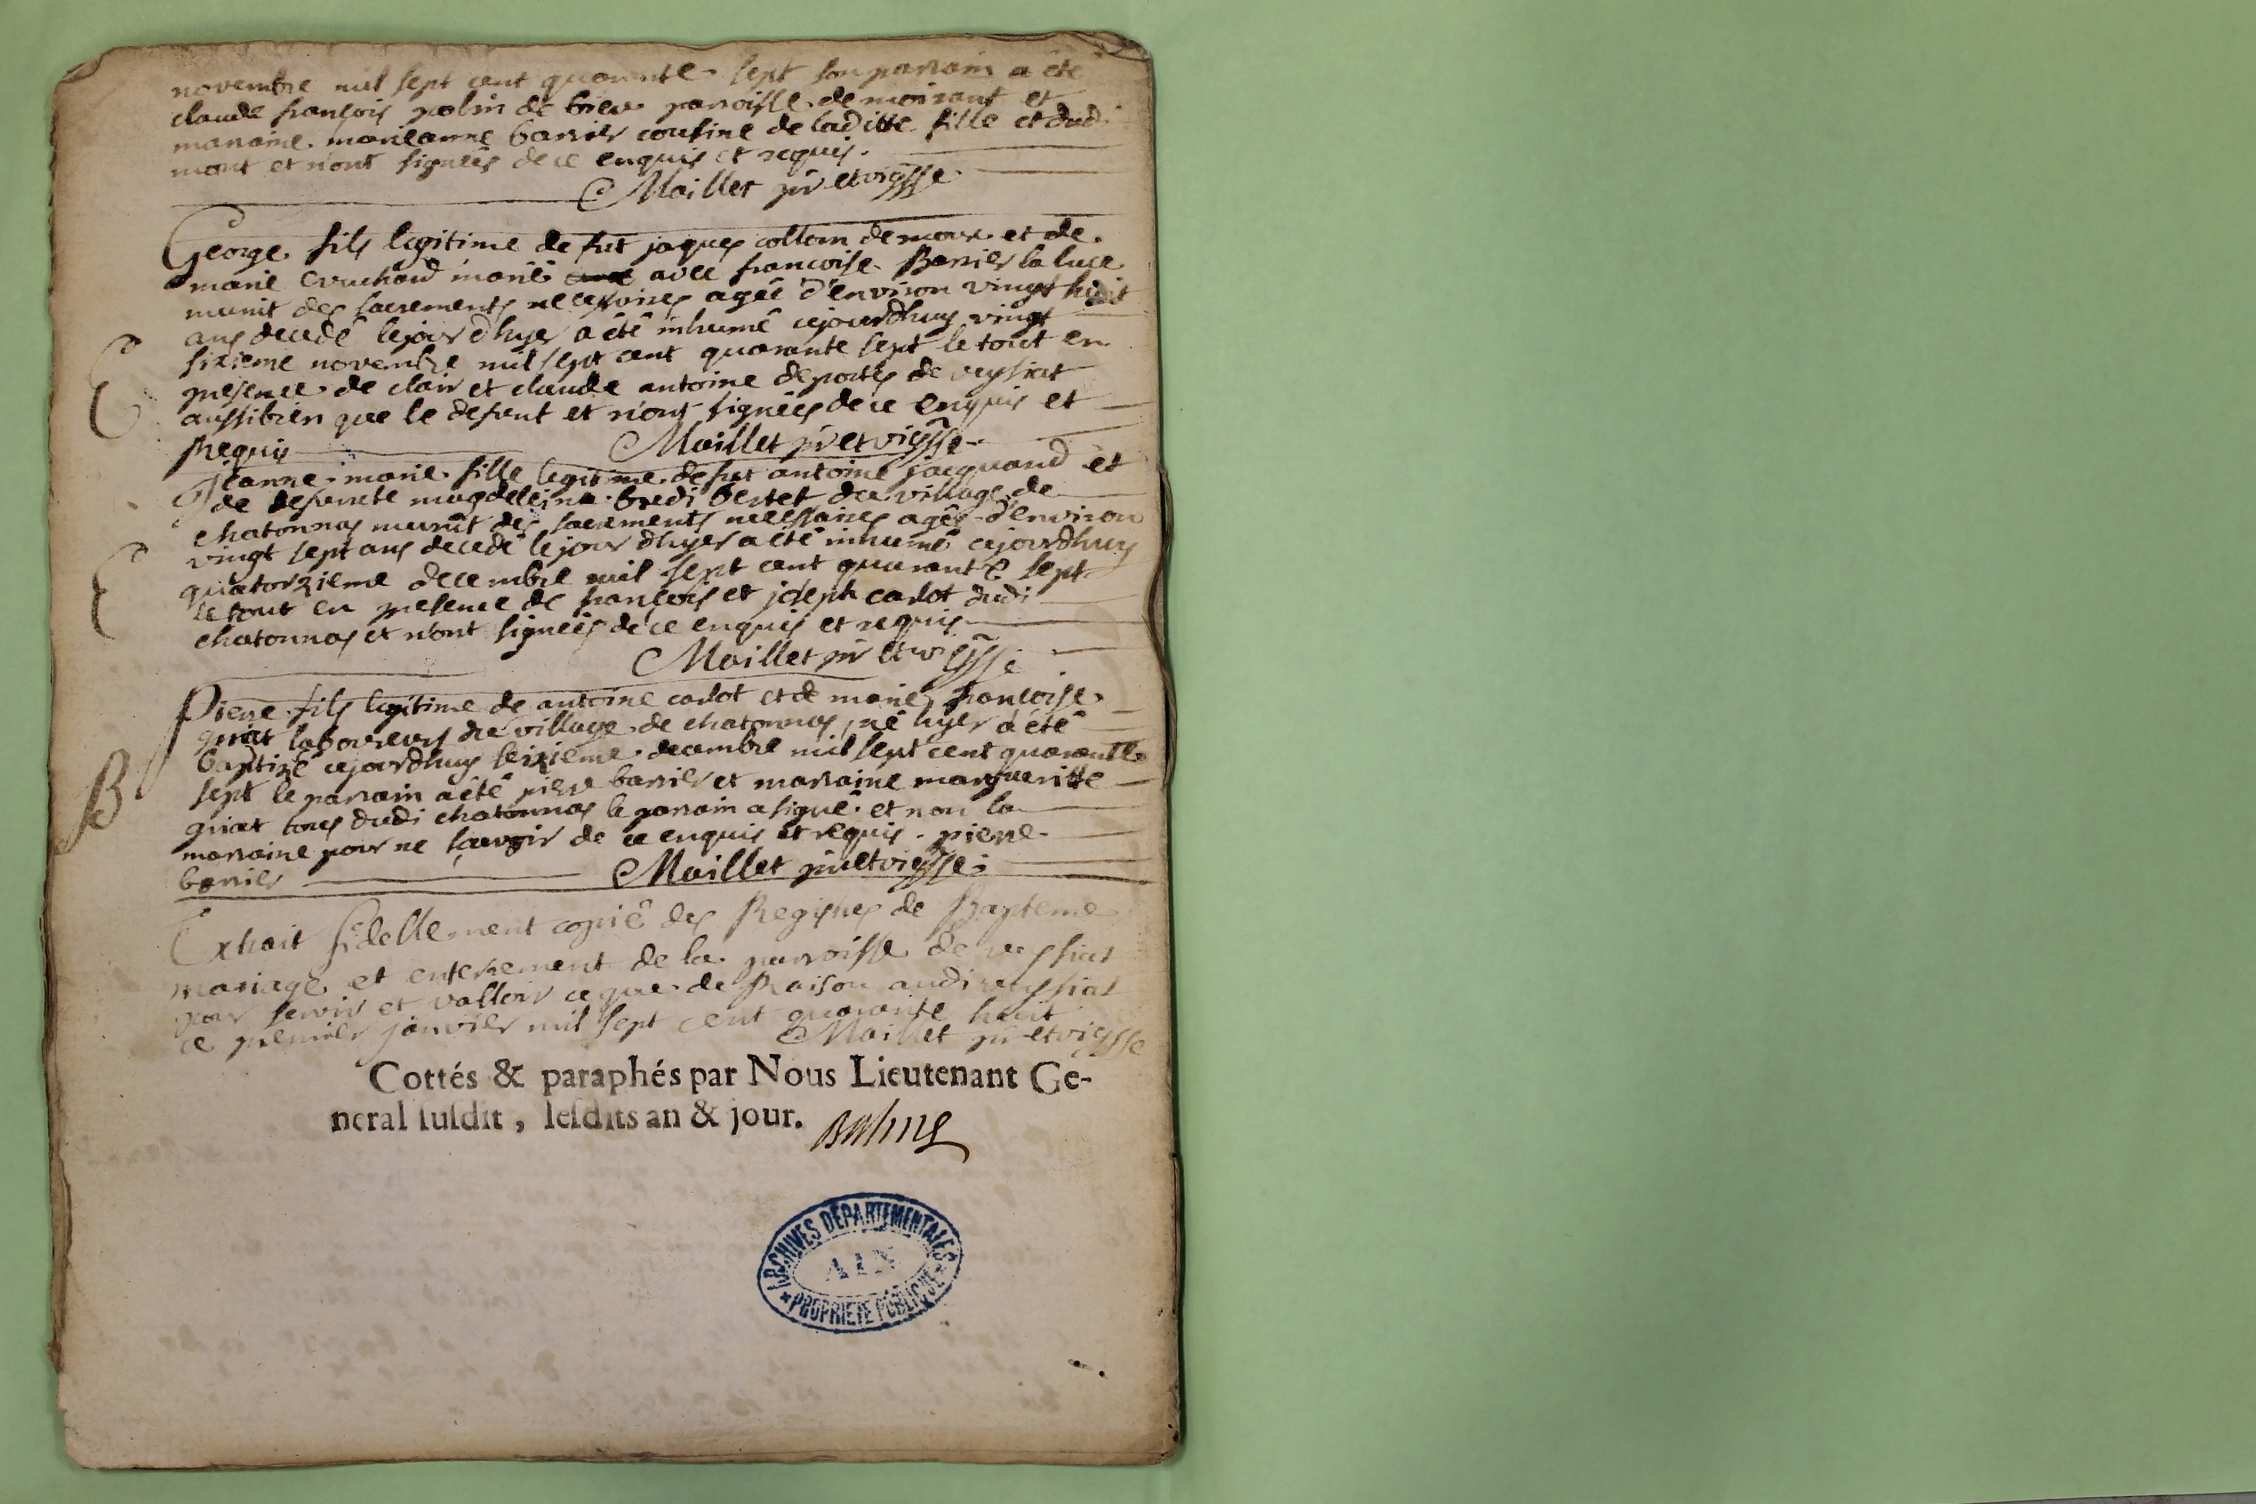 novembre mil sept cent quarante sept son parrain a été
claude françois polin de brev parroisse de moirant et
marraine marieanne barrier cousine de laditte fille et dudi
mont et n'ont signées de ce enquis et requis.
Maillet pr et viçsse
George fils legitime de fut jaques collom de et de
marie cruchaud marié avec francoise Barrier la luce
munit des sacrements necessoires agée d'environ vingt huit
ans decedé le jour d'hyer a été inhumé cejourdhuy vingt
E
sixieme novembre mil sept cent quarante sept le tout en
presence de clair et claude antoine deportes de veysiat
aussibien que le defunt et n'ont signées de ce enquis et
Requis
Maillet pr et viçsse
Jeanne marie fille legitime de fut antoine jacquand et
de defuncte magdeleine bredi bertet du village de
chatonnas munit des sacrements necessaires agée d'environ
E
vingt sept ans decedé le jour dhyer a été inhumé cejourdhuy
quatorzieme decembre mil sept cent quarante sept
le tout en presence de françois et joseph carlot dudi
chatonnas et n'ont signées de ce enquis et requis
Maillet pr et viçsse
Pierre fils legitime de antoine carlot et de marie francoise
griat laboureurs du village de chatonnas né hyer a été
baptizé cejourdhuy seizieme decembre mil sept cent quarante
B
sept le parrain a été pierre barrier et marraine margueritte
griat tous dudi chatonnas le parrain a signé et non la
marraine pour ne sçavoir de ce enquis et requis. pierre
barrier
Maillet pr et viçsse
Extrait fidellement copié des Registres de Bapteme
mariage et enterrement de la parroisse de veysiat
pour servir et valloir ce que de Raison audi veysiat
ce premier janvier mil sept cent quarante huit
Maillet pr et viçsse
Cottés & paraphés par Nous Lieutenant Ge-
neral susdit, lesdits an & jour.
ARCHIVES DÉPARTEMENTALES
AIN
* PROPRIÉTÉ PUBLIQUE *